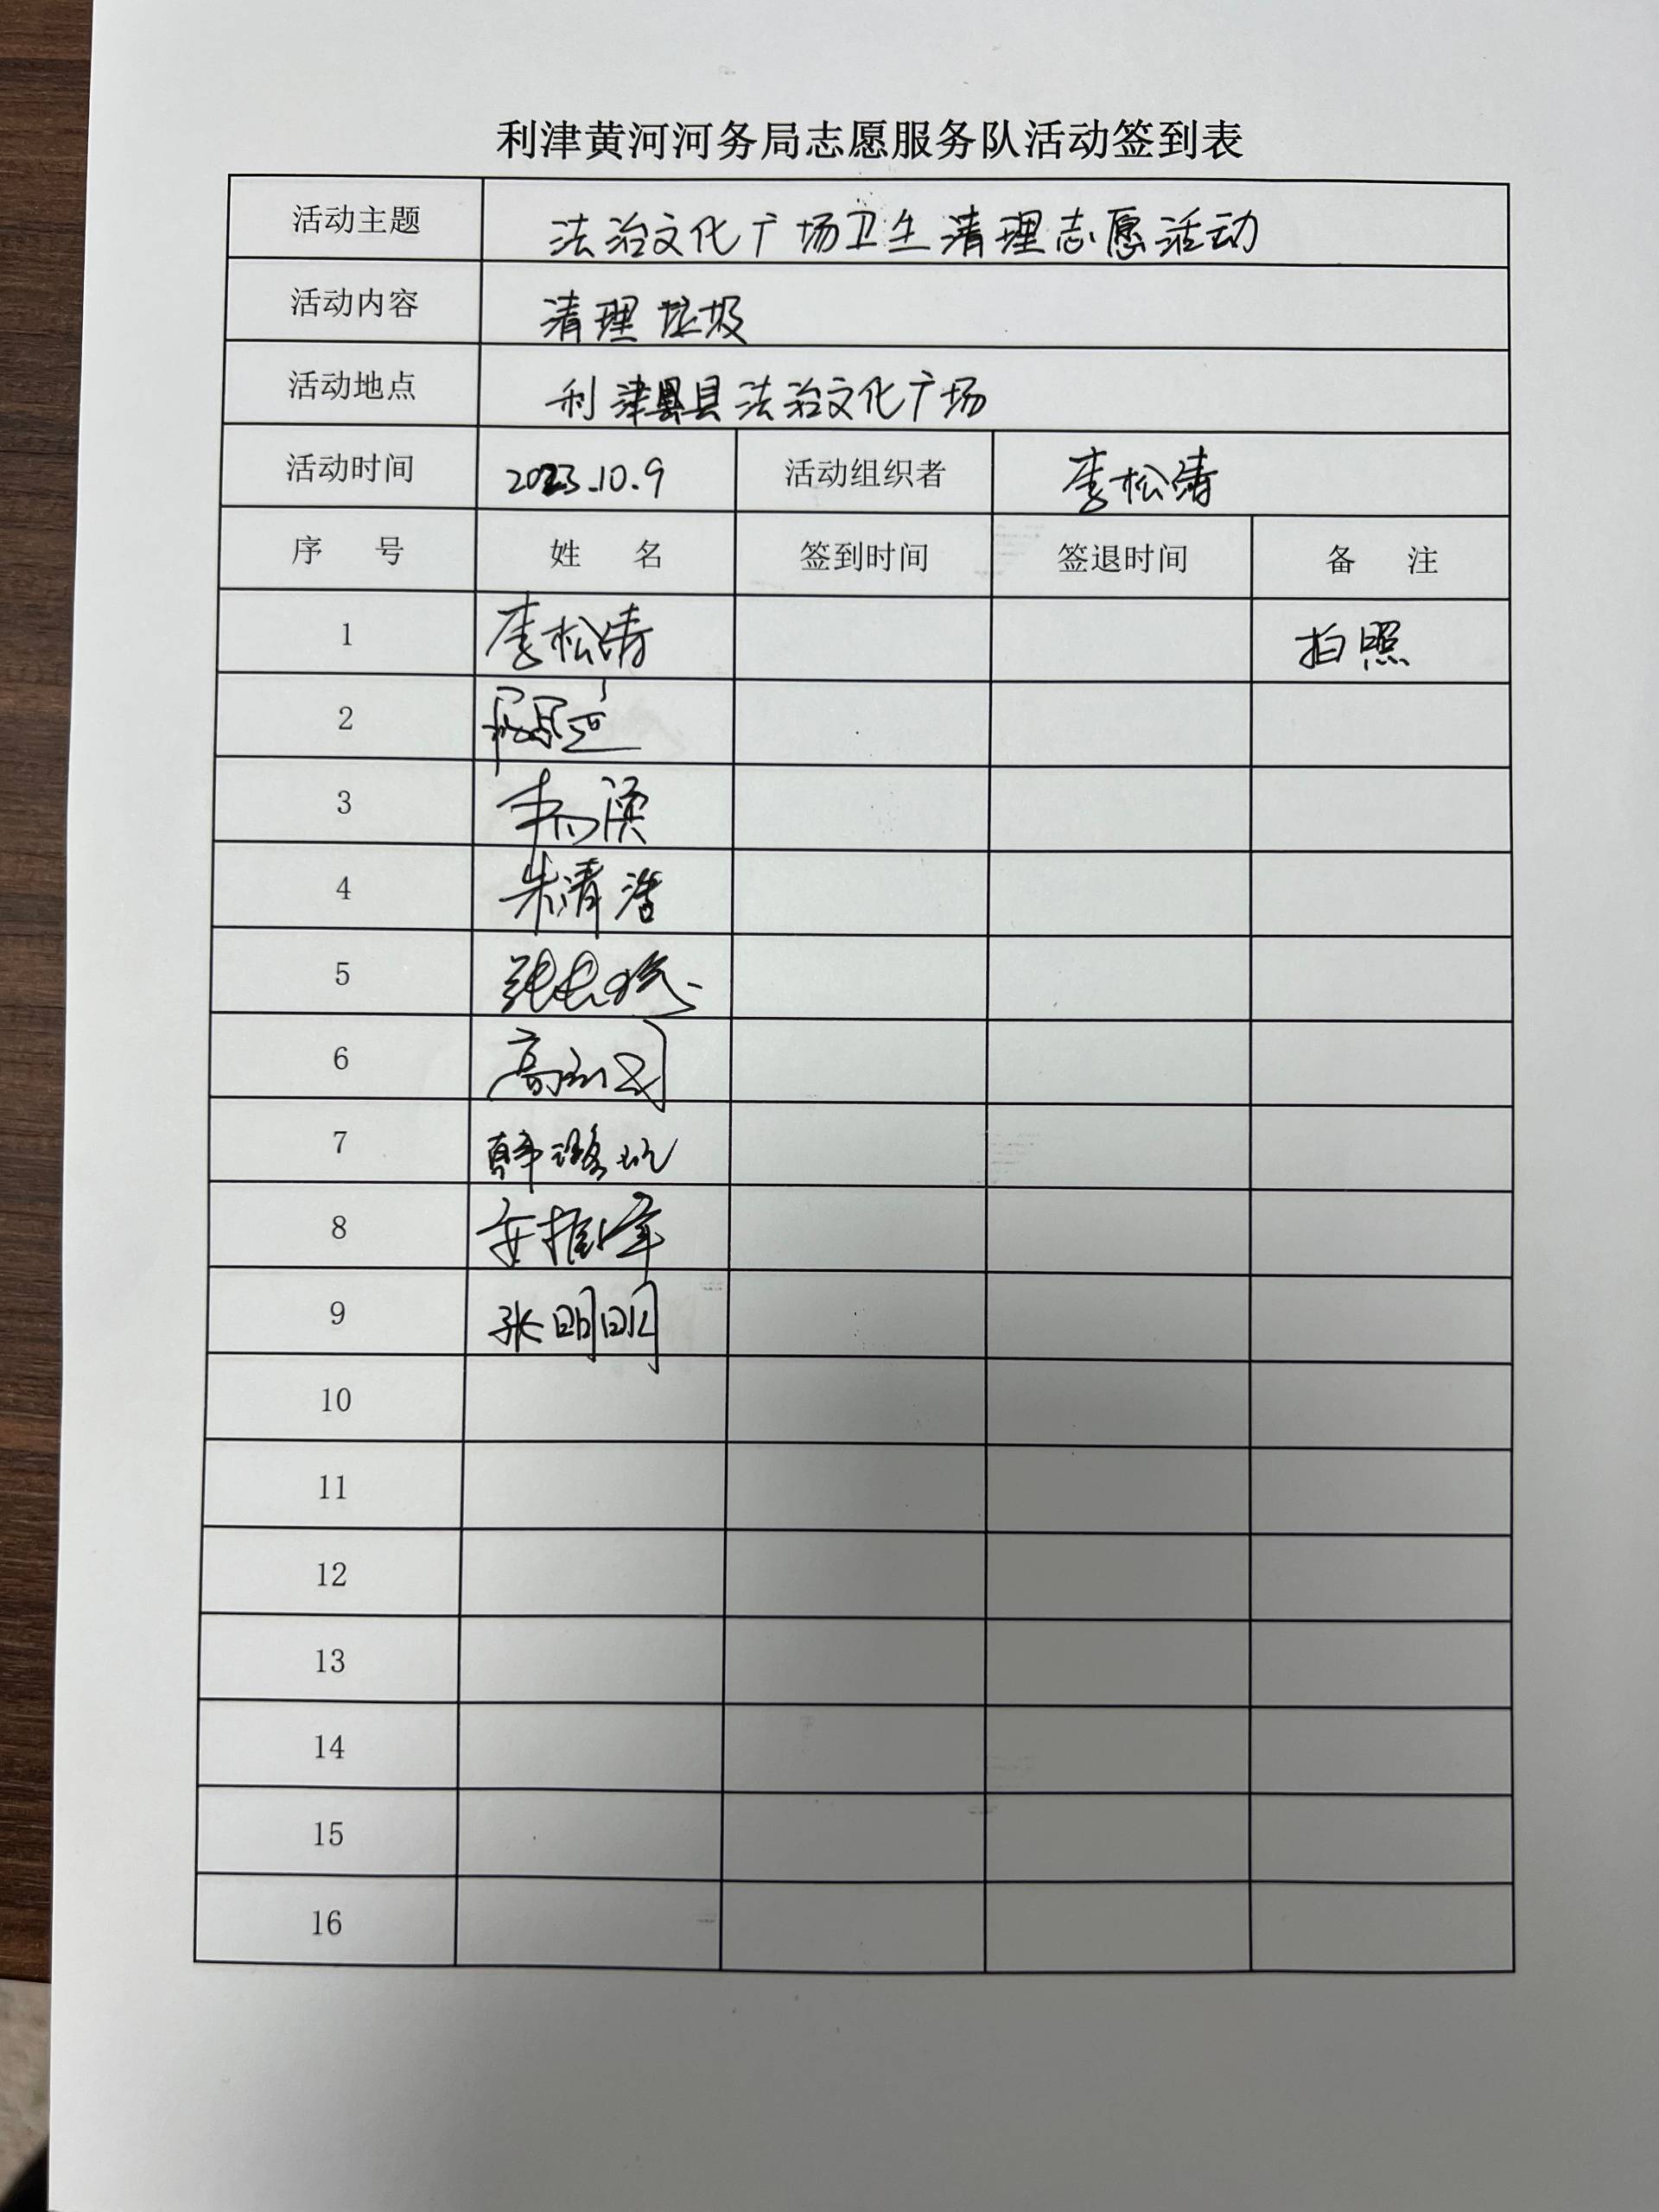 利津黄河河务局志愿服务队活动签到表
活动主题 法治文化广场卫生清理志愿活动
活动内容 清理垃圾
活动地点 利津县县法治文化广场
活动时间 2023.10.9 活动组织者 李松涛
序 号 姓 名 签到时间 签退时间 备 注
1 李松涛 拍照
2
3
4 朱清浩
5
6 高
7 韩璐
8 安
9 张明明
10
11
12
13
14
15
16